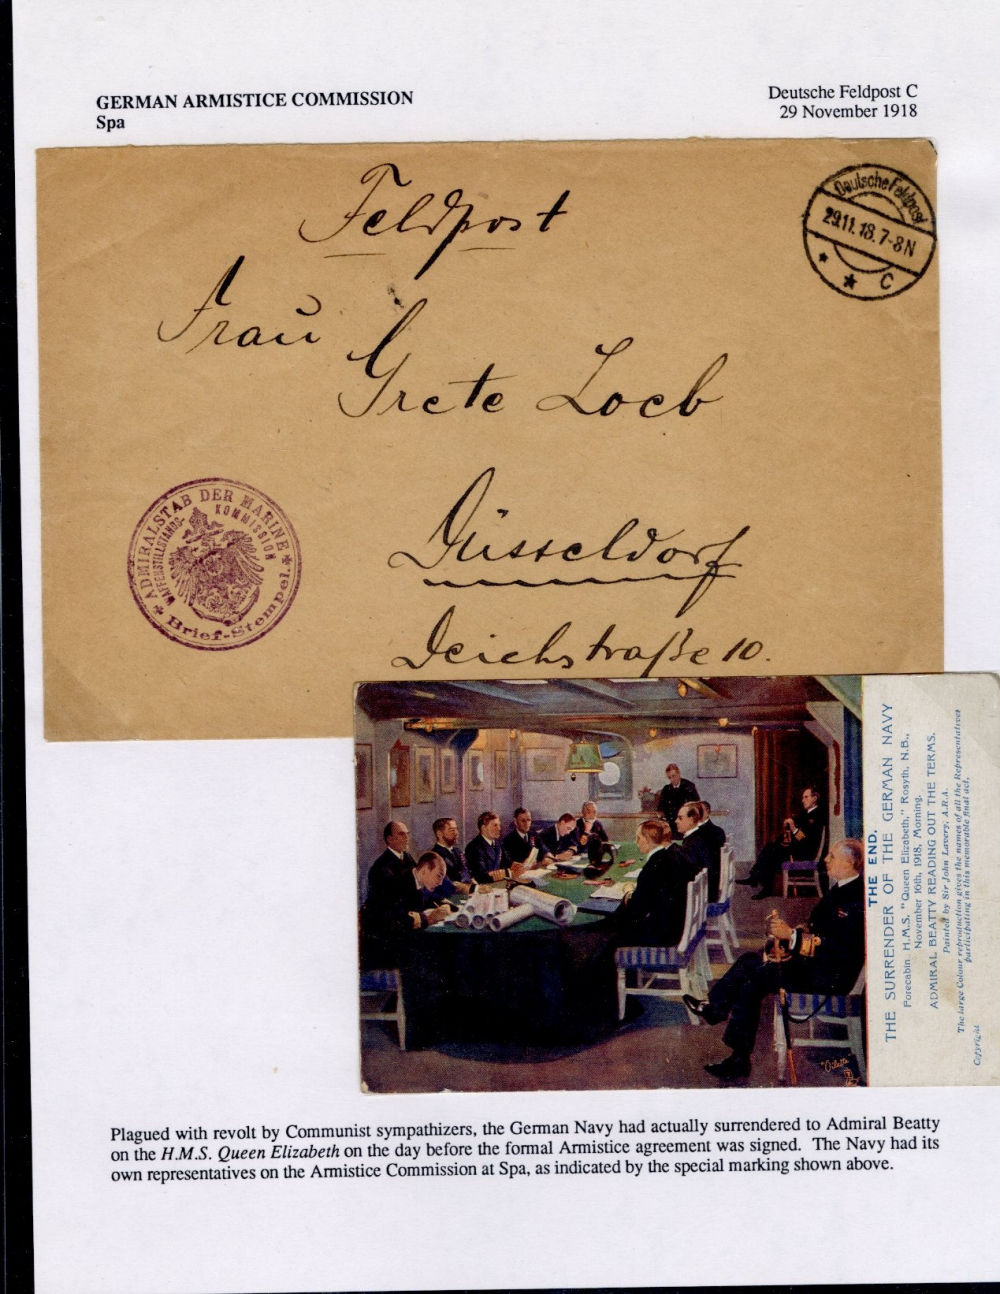 GERMAN ARMISTICE COMMISSION
Spa
Deutsche Feldpost C
29 November 1918
Feldpost
Frau
Grete Loeb
Düsseldorf
Deichstraße 10.
Deutsche Feldpost
29.11.18.7-8N
* * C
* ADMIRALSTAB DER MARINE *
WAFFENSTILLSTANDS-
KOMMISSION
Brief-Stempel.
THE END.
THE SURRENDER OF THE GERMAN NAVY
Forecabin H.M.S. "Queen Elizabeth," Rosyth, N.B.,
November 16th, 1918, Morning.
ADMIRAL BEATTY READING OUT THE TERMS.
Painted by Sir John Lavery, A.R.A.
The large Colour reproduction gives the names of all the Representatives
participating in this memorable final act.
Copyright
"Oilette"
Plagued with revolt by Communist sympathizers, the German Navy had actually surrendered to Admiral Beatty
on the H.M.S. Queen Elizabeth on the day before the formal Armistice agreement was signed. The Navy had its
own representatives on the Armistice Commission at Spa, as indicated by the special marking shown above.